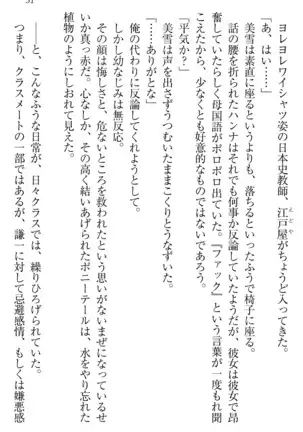 51
ヨレヨレワイシャツ姿の日本史教師、江戸屋がちょうど入ってきた。
「あ、はい……」
美雪は素直に座るというよりも、落ちるといったふうで椅子に座る。
話の腰を折られたハンナはそれでも何事か反論していたようだが、彼女は彼女で昂
奮していたらしく母国語がボロボロ出ていた。『ファック』という言葉が一度も聞
こえたから、少なくとも文法的なものではないであろう。
「平気か?」
「……ありがとな」
美雪は声を出さずうつむいたままこくりとうなずいた。
俺の代わりに反論してくれようとして。
しかし幼なじみは無反応。
その顔は悔しさと、危ないところを救われたという思いがないまぜになっているせ
いか真っ赤だ。心なしか、その高く結いあげられたポニーテールは、水をやり忘れた
植物のようにしおれて見えた。
――と、こんなふうな日常が、日々クラスでは、繰りひろげられていた。
つまり、クラスメートの一部ではあるが、謙一に対して忌避感情、もしくは嫌悪感